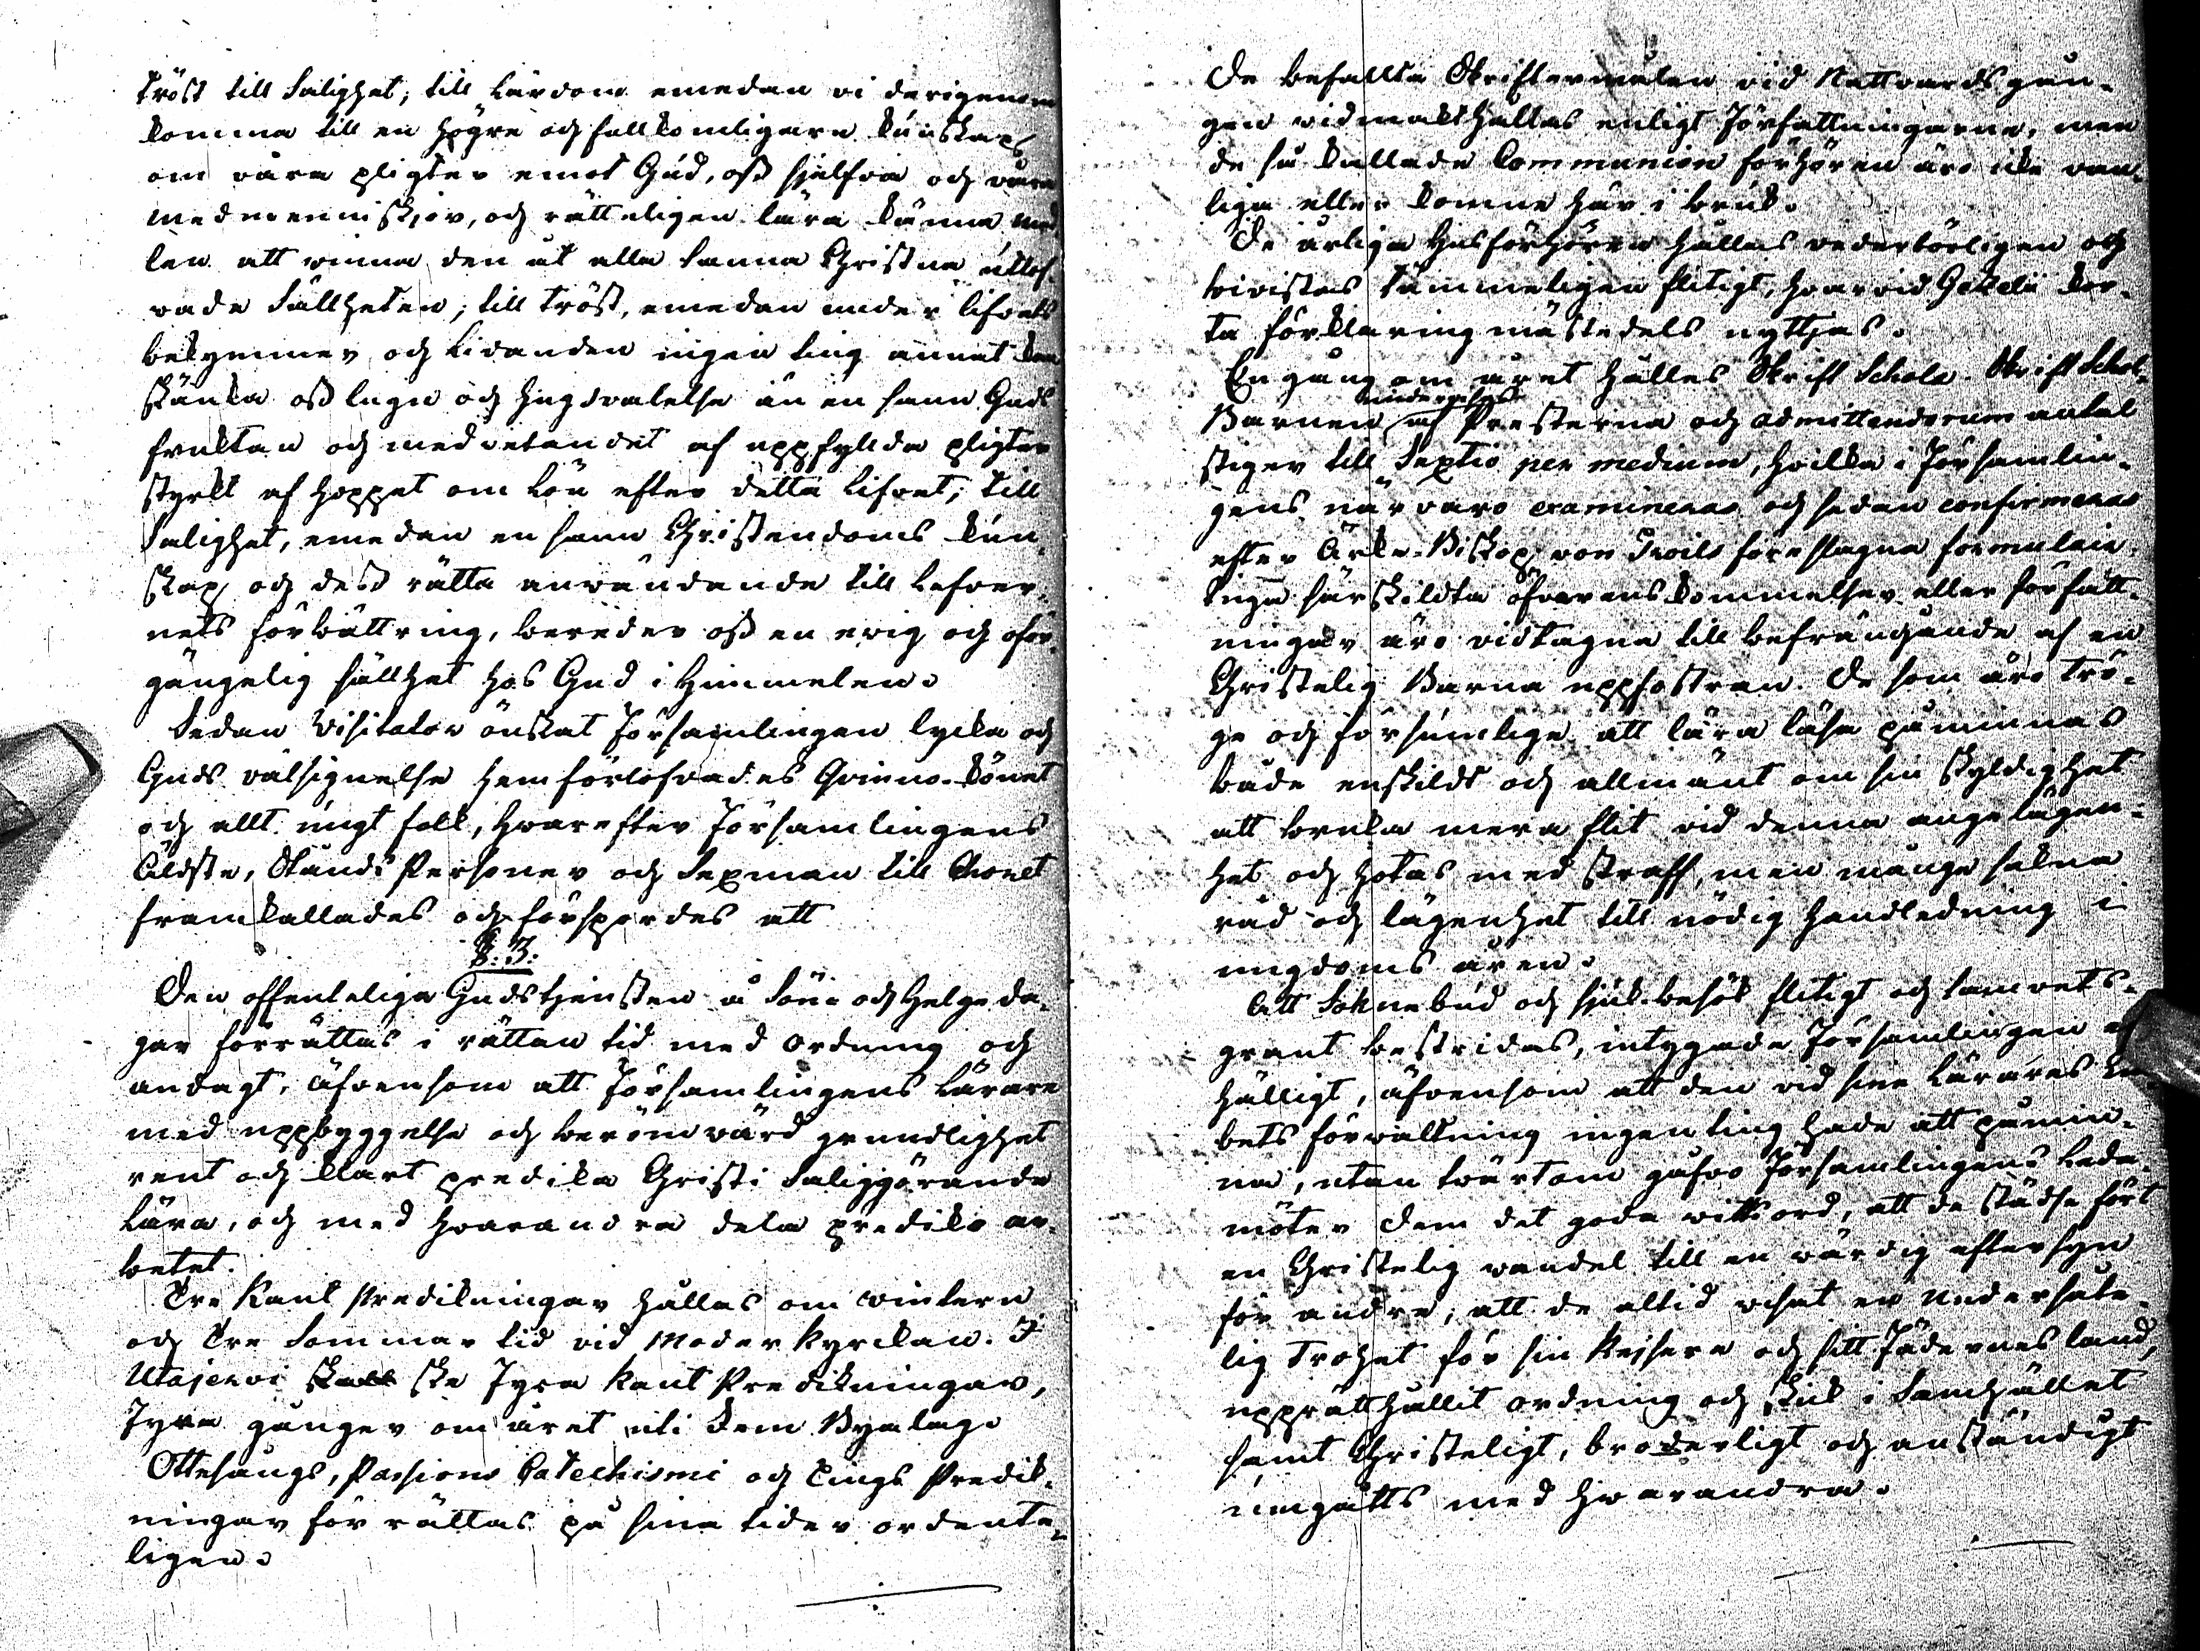 tröst till Salighet; till Lärdom emedan vi derigenom
komma till en högre och fullkomligare kunskap
om våra pligter emot Gud, oss sjelfva och våra
medmenniskjor, och rätteligen lära känna med
len att vinna den åt alla sanna Christna utlof-
vade Sällheten; till tröst, emedan under lifvets
bekymmer och Lidanden ingen ting annat kan
skänka oss lugn och hugsvalelse än en sann Guds
fruktan och medvetandet af uppfyllda pligter
styrkt af hoppet om Lön efter detta Lifvet; till
Salighet, emedan en sann Christendoms kun-
skap och dess rätta anwändande till Lefver-
nets förbättring, bereder oss en evig och oför-
gängelig sällhet hos Gud i Himmelen.
Sedan Visitator önskat Församlingen lycka och
Guds välsignelse hemförlofvades Qvinno-könet
och allt ungt folk, hvarefter Församlingens
Äldste, Stånds Personer och Sexman till Choret
framkallades och förspordes att
§: 3:
Den offenteliga Gudstjensten å Sön- och Helgeda-
gar förrättas i rättan tid med ordning och
andagt, äfvensom att Församlingens Lärare
med uppbyggelse och berömwärd grundlighet
rent och klart predika Christi Saliggörande
Lära, och med hvarandra dela prediko ar-
betet.
Tre Kant Predikningar hållas om wintern
och Tre Sommar tid vid Moder kyrckan. I
Utajervi skall ske Fyra Kant Predikningar,
Fyra gånger om året uti dem Byalag.
Ottesångs, Passions Catechismi och Tings Predik-
ningar förrättas på sina tider ordente-
ligen.
De befallta Skriftermålen vid Nattvardsgån-
gen vidmakthållas enligt Författningarna, men
de så kallade Communion förhören äro icke van-
liga eller komne här i bruk.
De årliga Husförhören hållas vederbörligen och
bivistas tämmeligen flitigt, hvarvid Gezelii kor-
ta förklaring mästedels nyttjas.
En gång om året hålles Skrift Schola. Skrift Schol-
undervises
Barnen af Presterna och admittendorum antal
stiger till Sextio per medium, hvilka i Församlin-
gens närvaro examineras och sedan confirmeras
efter Ärke-Biskop von Troils föreslagna formulair.
Inga särskildta öfverenskommelser eller författ-
ningar äro vidtagna till befrämjande af en
Christelig Barna uppfostran. De som äro trö-
ge och försumlige att lära läsa påminnas
både enskildt och allmänt om sin skyldighet
att bruka mera flit vid denna angelägen-
het och hotas med straff, men många sakna
råd och lägenhet till nödig handledning i
ungdoms åren.
Att Sokne bud och sjuk besök flitigt och samvets-
grant bestridas, intygade Församlingen en
hälligt, äfvensom att den vid sine Lärares Em
bets förwaltning ingen ting hade att påmin-
na, utan twärtom gåfvo Församlingens Leda-
möter dem det goda wittsord, att de städse fört
en Christelig wandel till en wärdig eftersyn
för andra; att de altid wisat en undersåte-
lig Trohet för sin Kejsare och sitt Fädernesland,
upprätthållit ordning och skick i Samhället
samt Christeligt, broderligt och anständigt
umgåtts med hwarandra.